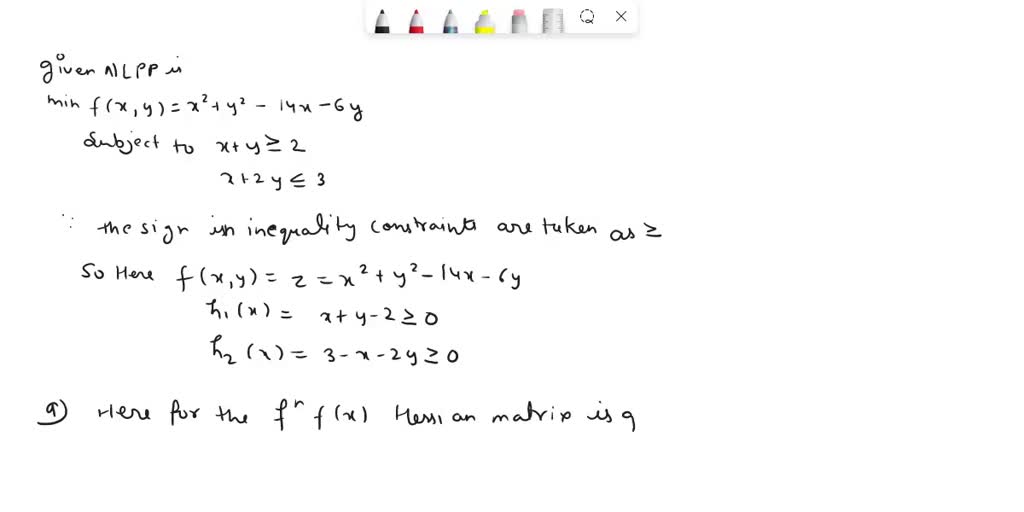 given NLPP is
min f(x,y) = x² + y² - 14x - 6y
Subject to x+y ≥ 2
x+2y ≤ 3
∵ the sign in inequality constraints are taken as ≥
So Here f(x,y) = z = x² + y² - 14x - 6y
h₁(x) = x+y-2 ≥ 0
h₂(x) = 3-x-2y ≥ 0
a) Here for the fⁿ f(x) Hessian matrix is g